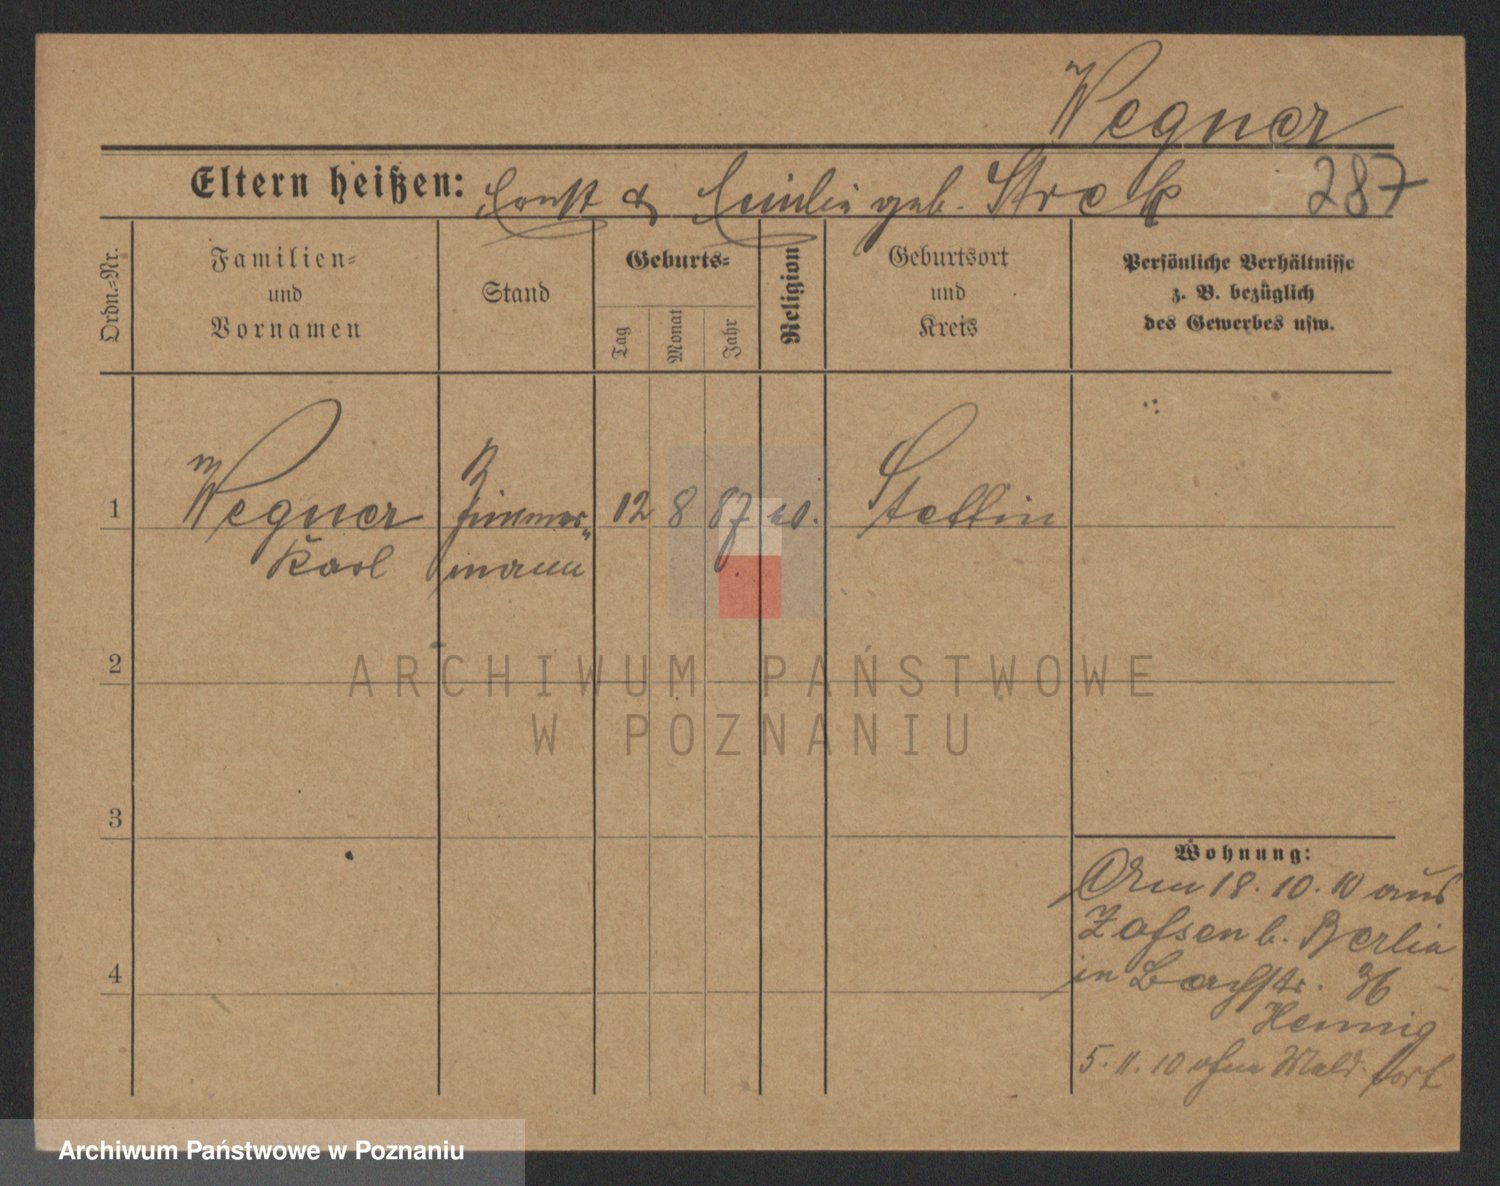 Wegner
Eltern heißen: Ernst & Emilie geb. Strek 287
Ordn.-Nr.
Familien-
und
Vornamen
Stand
Geburts-
Tag
Monat
Jahr
Religion
Geburtsort
und
Kreis
Persönliche Verhältnisse
z. B. bezüglich
des Gewerbes usw.
1 Wegner Zimmer- 12 8 87 ev. Stettin
Karl mann
2
ARCHIWUM PAŃSTWOWE
W POZNANIU
3
Wohnung:
Am 18.10.10 aus
Zossen b. Berlin
in Bachstr. 36
Hennig
4
5.11.10 ohne Meld. fort
Archiwum Państwowe w Poznaniu